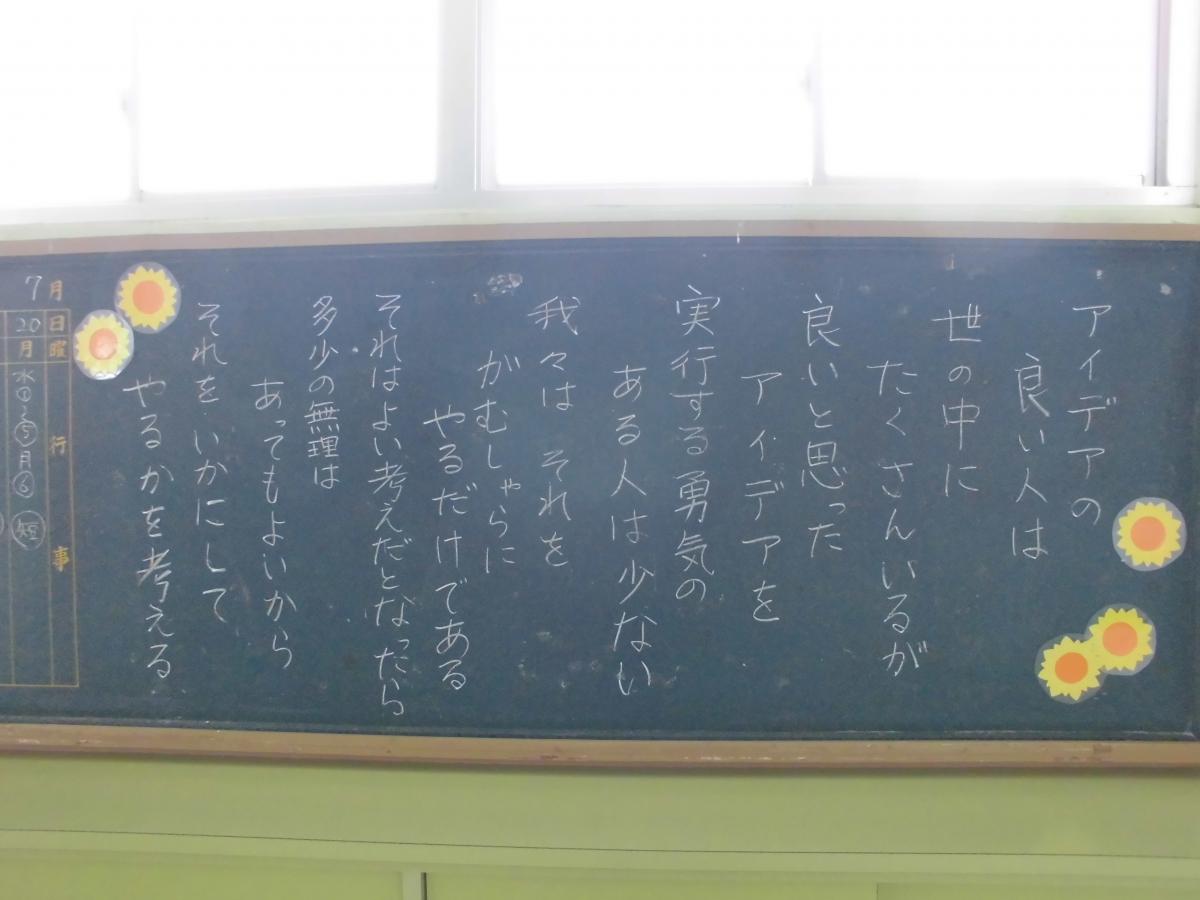 アイデアの
良い人は
世の中に
たくさんいるが
良いと思った
アイデアを
実行する勇気の
ある人は少ない
我々は それを
がむしゃらに
やるだけである
それはよい考えだとなったら
多少の無理は
あってもよいから
それを いかにして
やるかを考える
7月
20日
月曜
行事
水①〜⑤月⑥ 短